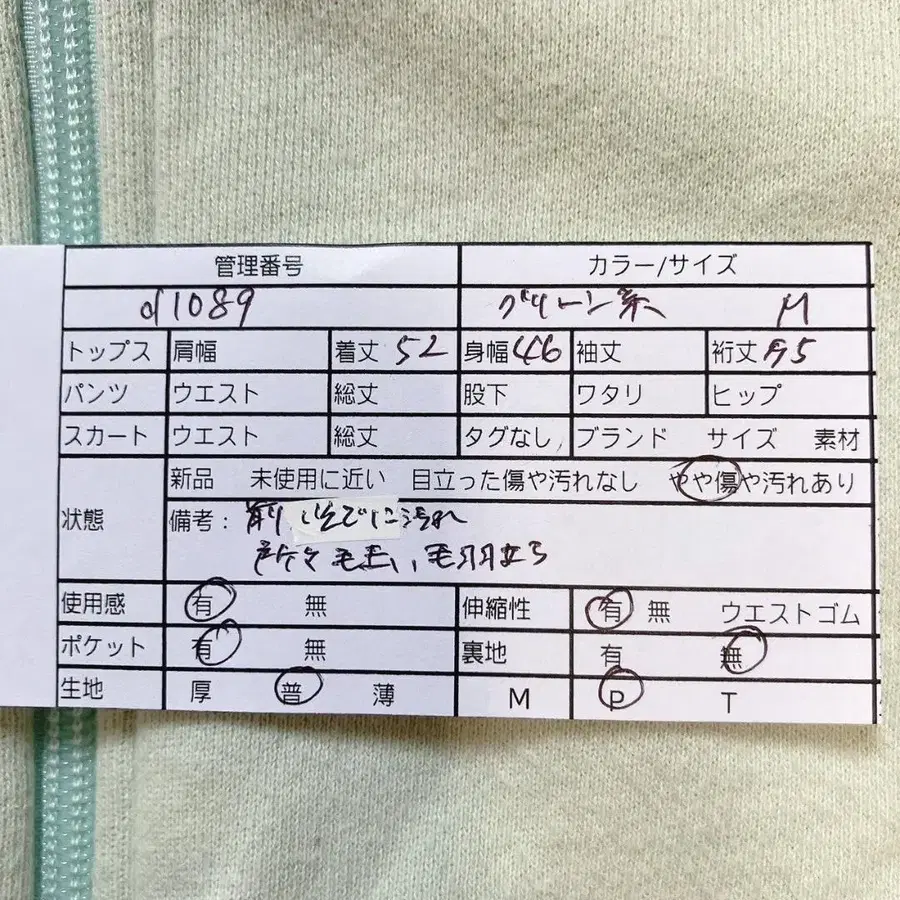 管理番号 カラー/サイズ
d1089 グリーン系 M
トップス 肩幅 着丈 52 身幅 46 袖丈 裄丈
パンツ ウエスト 総丈 股下 ワタリ ヒップ
スカート ウエスト 総丈 タグなし, ブランド サイズ 素材
新品 未使用に近い 目立った傷や汚れなし やや傷や汚れあり
状態 備考: 前 そでに汚れ
所々毛玉、毛羽立ち
使用感 有 無 伸縮性 有 無 ウエストゴム
ポケット 有 無 裏地 有 無
生地 厚 普 薄 M P T